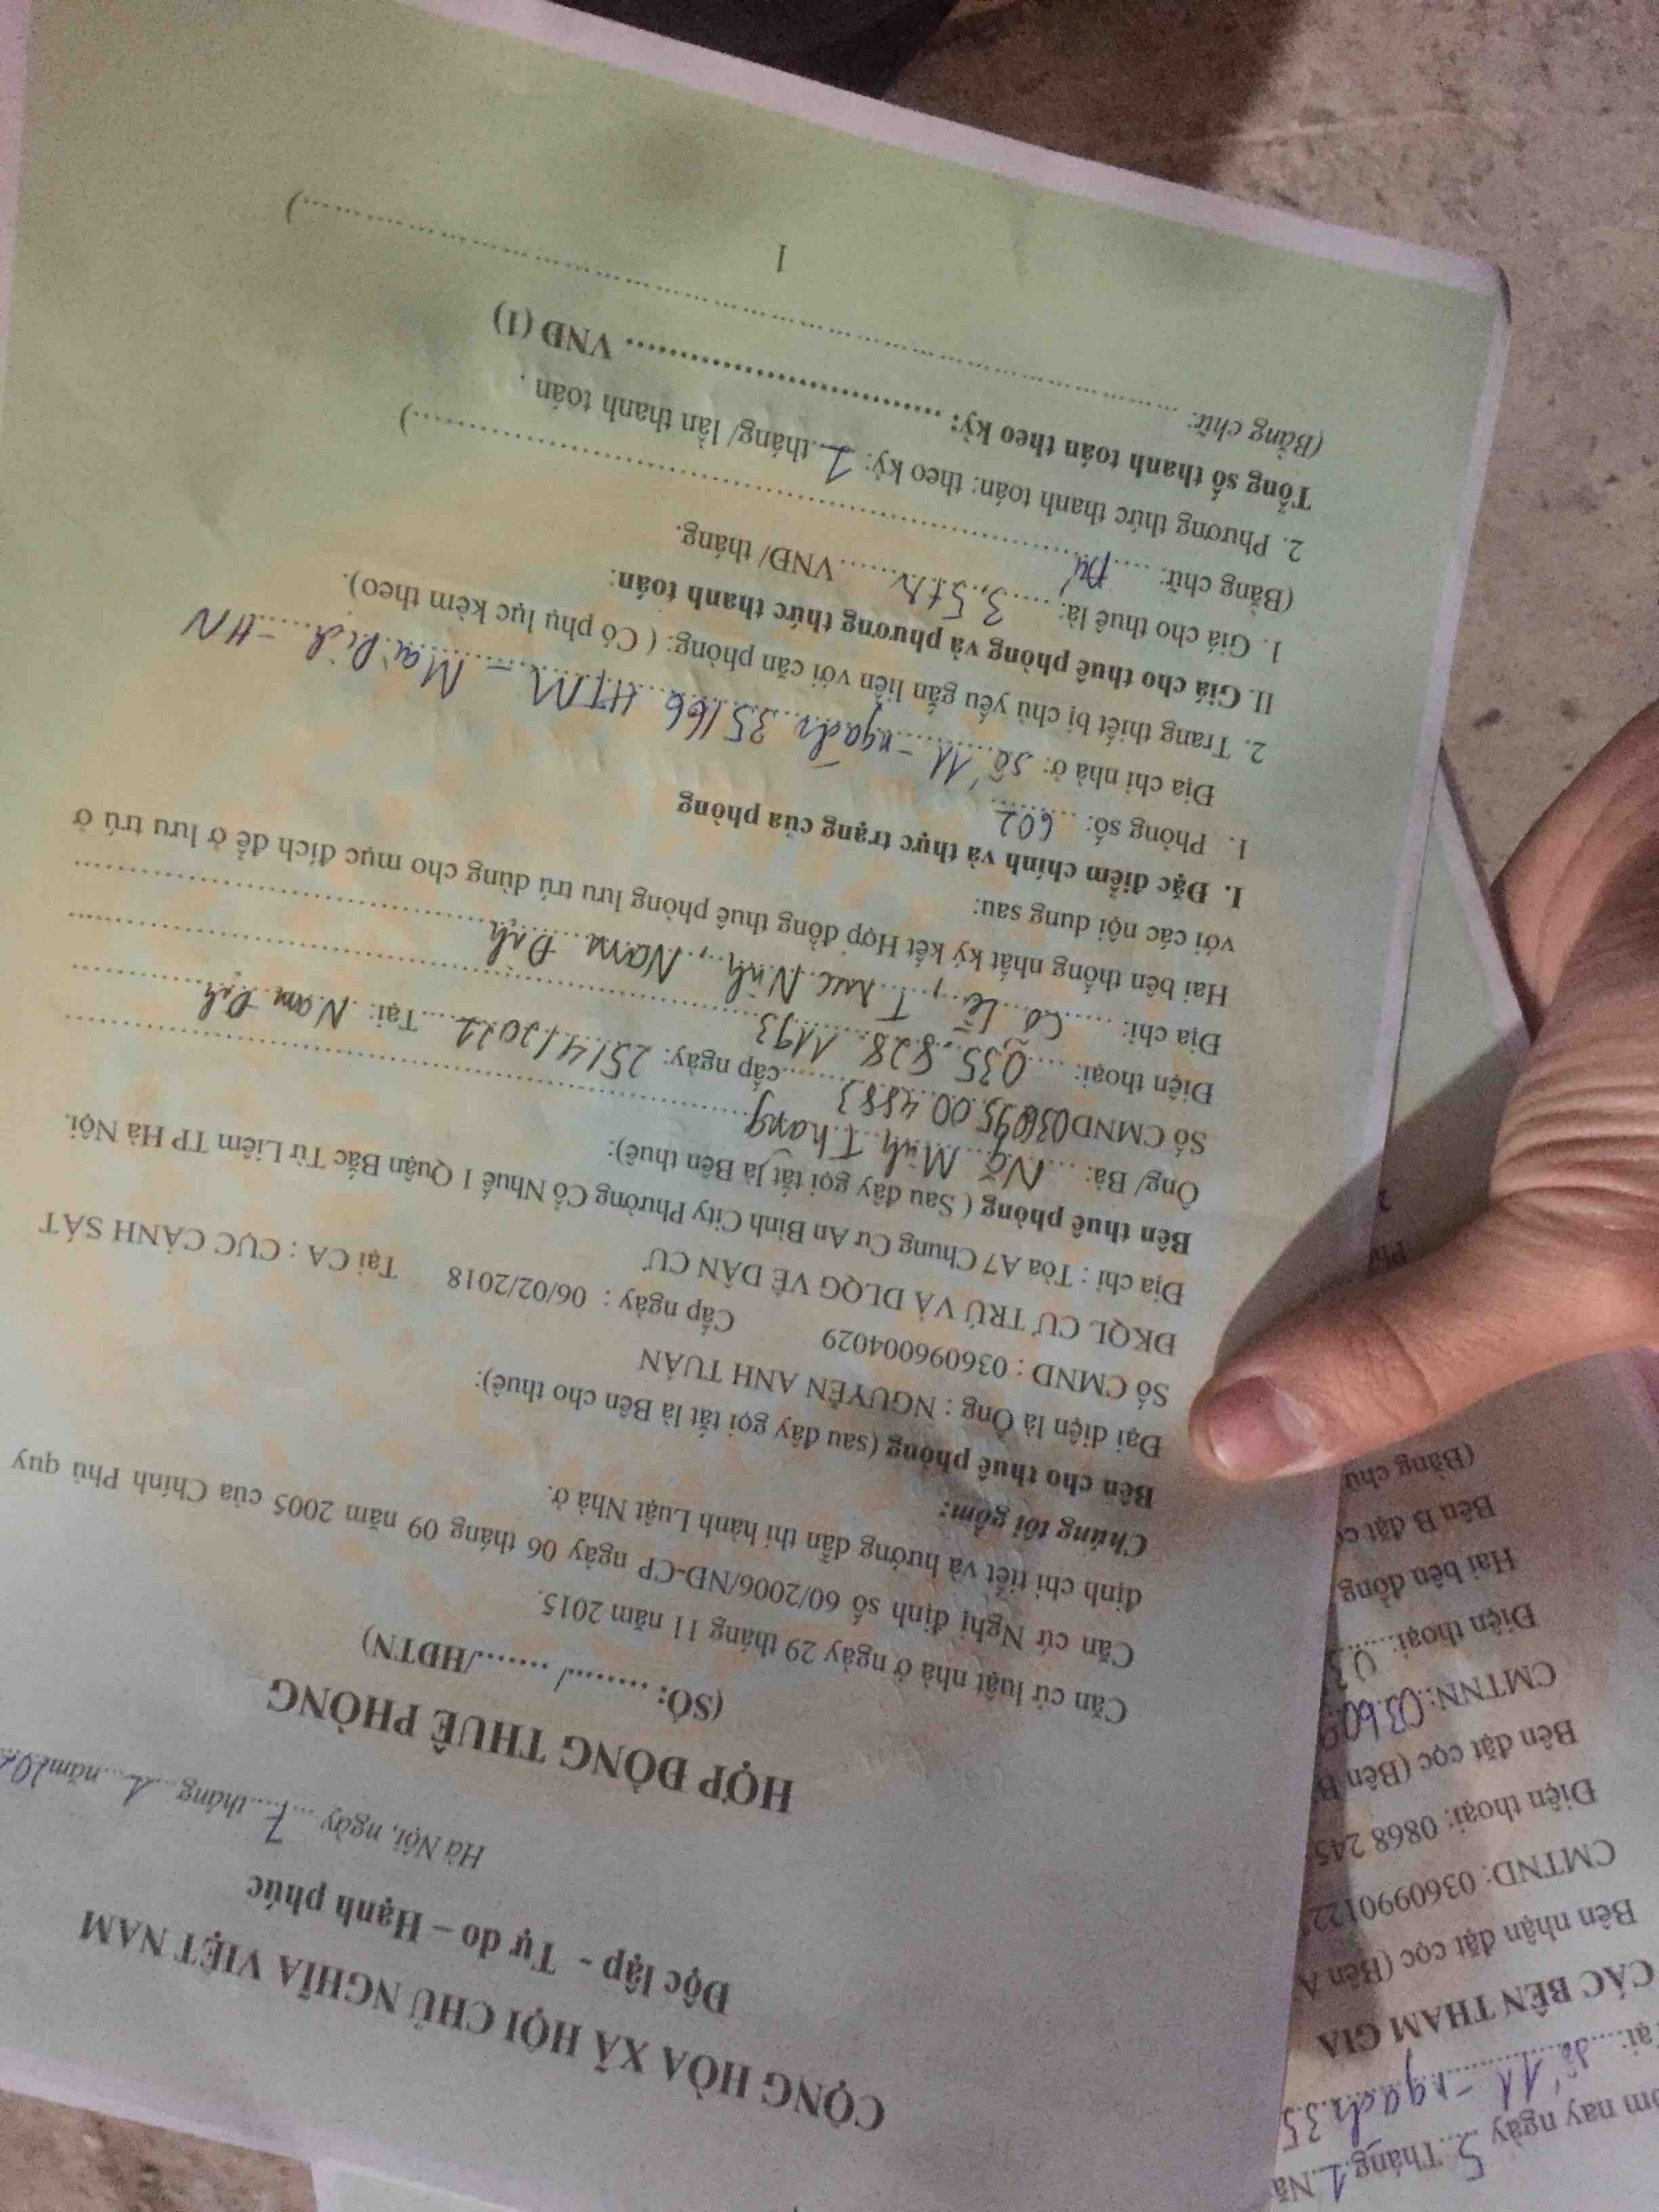 CỘNG HÒA XÃ HỘI CHỦ NGHĨA VIỆT NAM
Độc lập - Tự do – Hạnh phúc
Hà Nội, ngày ...7... tháng ...1... năm 20
HỢP ĐỒNG THUÊ PHÒNG
(SỐ: ......./......./HĐTN)
Căn cứ luật nhà ở ngày 29 tháng 11 năm 2015.
Căn cứ Nghị định số 60/2006/NĐ-CP ngày 06 tháng 09 năm 2005 của Chính Phủ quy
định chi tiết và hướng dẫn thi hành Luật Nhà ở.
Chúng tôi gồm:
Bên cho thuê phòng (sau đây gọi tắt là Bên cho thuê):
Đại diện là Ông : NGUYỄN ANH TUẤN
Số CMND : 036096004029 Cấp ngày : 06/02/2018 Tại CA : CỤC CẢNH SÁT
ĐKQL CƯ TRÚ VÀ DLQG VỀ DÂN CƯ
Địa chỉ : Tòa A7 Chung Cư An Bình City Phường Cổ Nhuế 1 Quận Bắc Từ Liêm TP Hà Nội.
Bên thuê phòng ( Sau đây gọi tắt là Bên thuê):
Ông/ Bà: Minh Thang
Số CMND cấp ngày: 25/4/2022 Tại: Nam Định
Điện thoại: 035 828 1193
Địa chỉ: Cổ Lễ, Trực Ninh, Nam Định
Hai bên thống nhất ký kết Hợp đồng thuê phòng lưu trú dùng cho mục đích để ở lưu trú ở
với các nội dung sau:
I. Đặc điểm chính và thực trạng của phòng
1. Phòng số: 602
Địa chỉ nhà ở: Số 11 - ngách 35/66 HTM - Mai Dịch - HN
2. Trang thiết bị chủ yếu gắn liền với căn phòng: ( Có phụ lục kèm theo).
II. Giá cho thuê phòng và phương thức thanh toán:
1. Giá cho thuê là: 3,5tr VNĐ/ tháng.
(Bằng chữ: )
2. Phương thức thanh toán: theo kỳ: tháng/ lần thanh toán .
Tổng số thanh toán theo kỳ: VNĐ (1)
(Bằng chữ: )
1
nay ngày 5 Tháng 1
Số 11 - ngách 35
CÁC BÊN THAM GIA
Bên nhận đặt cọc (Bên A
CMTND: 036099012
Điện thoại: 0868 245
Bên đặt cọc (Bên B
CMTNN: 03609
Điện thoại: 03
Hai bên đồng
Bên B đặt
(Bằng chữ